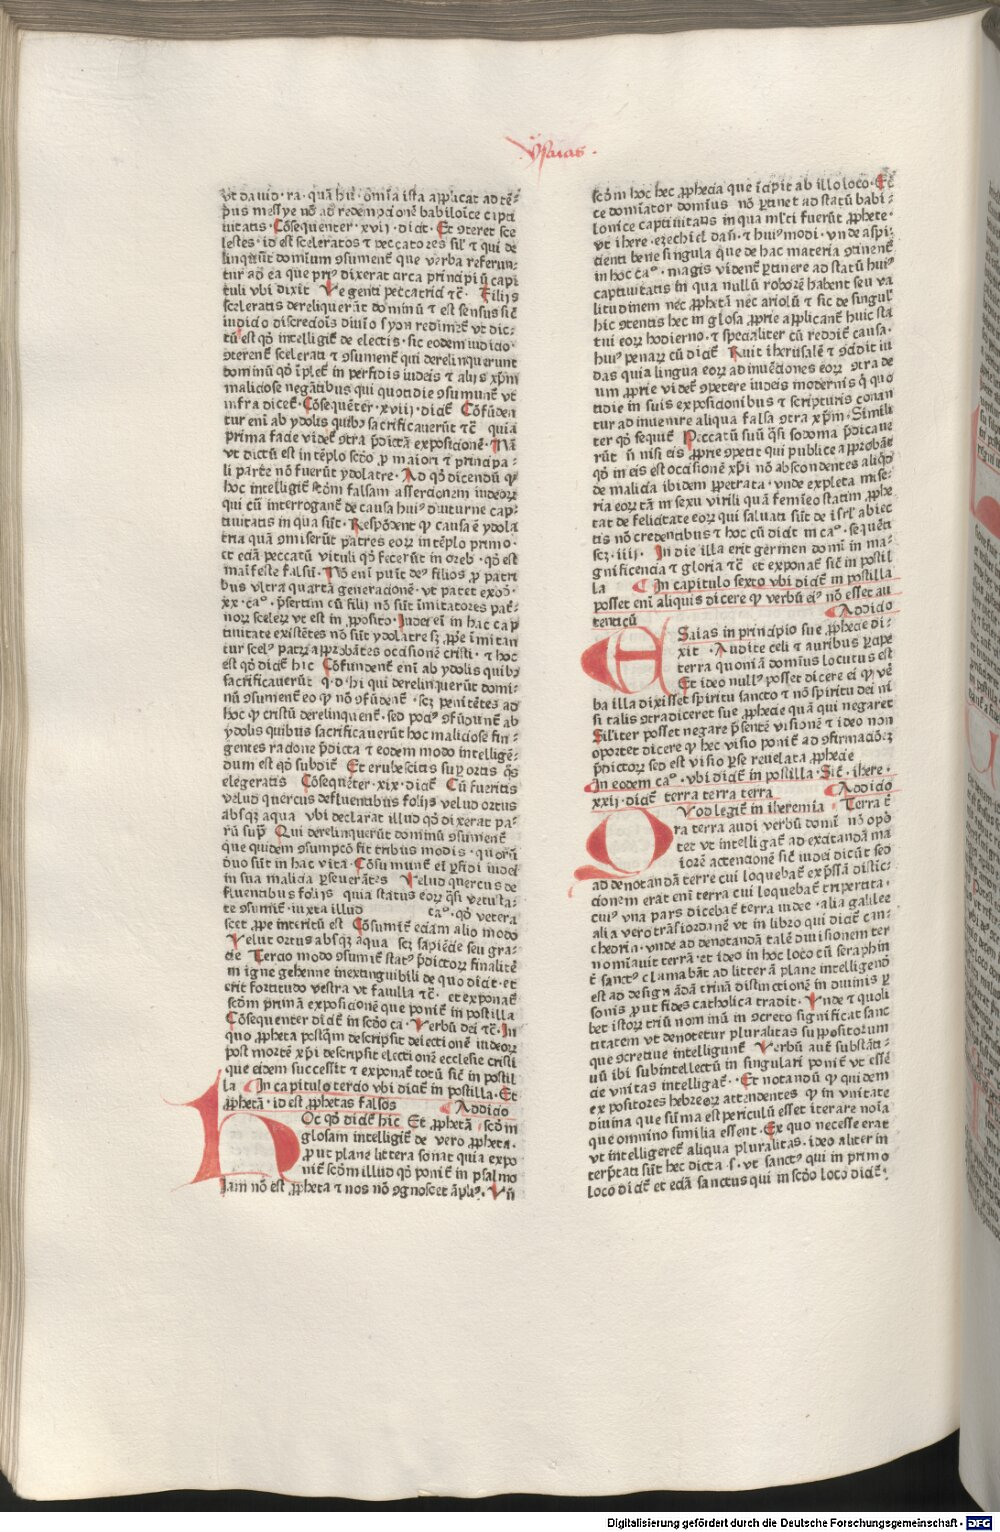 Ysaias.
vt dauid. ra. quā hu. om̄ia ista applicat ad tē⸗
pus messye nō ad redempcionē babilōice capti
uitatis. Cōsequenter. xvij. dicit. Et ꝯteret sce
lestes. id est sceleratos ⁊ peccatores sil̄ ⁊ qui de
linq̄rūt domīum ꝯsument̄ que verba referun⸗
tur ad ea que priꝰ dixerat circa principiū capi
tuli vbi dixit Ve genti peccatrici ⁊c̄. Filijs
sceleratis dereliquerūt dominū ⁊ est sensus sic̄
iudicio discrecōis diuīo syon redimet̄ vt dic⸗
tū est qd̓ intelligit̄ de electis. sic eodem iudicio
ꝯterent̄ scelerati ⁊ ꝯsument̄ qui derelinquerunt
dominū qd̓ īplet̄ in perfidis iudeis ⁊ alijs xp̄m
maliciose negātibus qui quotidie ꝯsumunt̄ vt
infra dicet̄. Cōsequēter. xviij. dicit̄ Cōfūden
tur enī ab ydolis quibꝰ sacrificauerūt ⁊c̄ quia
prima facie videt̄ ꝯtra p̄dictā exposicionē. Nā
vt dictū est in tēplo scd̓o ꝓ maiori ⁊ principa⸗
li parte nō fuerūt ydolatre. Ad qd̓ dicendū ꝙ
hoc intelligit̄ scd̓m falsam assercionem iudeoꝝ
qui cū interrogant̄ de causa huiꝰ diuturne cap⸗
tiuitatis in qua sūt. Respōdent ꝙ causa ē ydola
tria quā ꝯmiserūt patres eoꝝ in tēplo primo.
et eciā peccatū vituli qd̓ fecerūt in oreb. qd̓ est
maīfeste falsū. Nō enī punit deꝰ filios ꝓ patri
bus vltra quartā generacionē. vt patet exod̓.
xx. ca°. p̄sertim cū filij nō sūt imitatores pat̓⸗
noꝝ sceleꝝ vt est in ꝓposito. Iudei eī in hac cap
tiuitate existētes nō sūt ydolatre sꝫ ꝓpe īmitan
tur scelꝰ patꝝ approbātes occisionē cristi. ⁊ hoc
est qd̓ dicit̄ hic Cōfundent̄ enī ab ydolis quibꝰ
sacrificauerūt. q. d. hi qui derelinquerūt domi⸗
nū ꝯsument̄ eo ꝙ nō ꝯfūdent̄. scꝫ penitētes ad
hoc ꝙ cristū derelinquent̄. sed pociꝰ ꝯfūdunt̄ ab
ydolis quibus sacrificauerūt hoc maliciose fin⸗
gentes racione p̄dicta ⁊ eodem modo intelligē⸗
dum est qd̓ subdit̄ Et erubescitis sup̄ ortis qōs
elegeratis Cōsequēter. xix. dicit̄ Cū fueritis
velud quercus defluentibus folijs velud ortus
absqꝫ aqua vbi declarat illud qd̓ dixerat pa⸗
rū sup̄ Qui derelinquerūt dominū ꝯsument̄
que quidem ꝯsumpcō fit tribus modis. quoꝝ
duo sūt in hac vita. Cōsumunt̄ eī ꝑfidi iudei
in sua malicia ꝑseuerātes Velud quercus de
fluentibus folijs quia status eoꝝ qͣsi vetusta⸗
te ꝯsumit̄. iuxta illud ca°. qd̓ vetera
scet ꝓpe interitū est Cōsumit̄ eciam alio modo
Velut ortus absqꝫ aqua scꝫ sapiēcie seu gra⸗
cie Tercio modo ꝯsumit̄ statꝰ p̄dictoꝝ finalitē
in igne gehenne inextinguibili de quo dicit. et
erit fortitudo vestra vt fauilla ⁊c̄. et exponat̄
scd̓m primā exposicionē que ponit̄ in postilla
Cōsequenter dicit̄ in scd̓o ca. Verbū dei ⁊c̄. In
quo ꝓpheta postqͣm descripsit deiectionē iudeoꝝ
post mortē xp̄i descripsit electionē ecclesie cristi
que eidem successit ⁊ exponat̄ totū sic̄ in postil
la In capitulo tercio vbi dicit̄ in postilla. Et
ꝓphetā. id est ꝓphetas falsos Addicio
Hoc qd̓ dicit̄ hic Et ꝓphetā scd̓m
glosam intelligit̄ de vero ꝓpheta.
ꝓut plane littera sonat quia expo
nit̄ scd̓m illud qd̓ ponit̄ in psalmo
Iam nō est ꝓpheta ⁊ nos nō ꝯgnoscet āpliꝰ. Vn̄
scd̓m hoc hec ꝓphecia que īcipit ab illo loco. Ec
ce domīator domīus nō ꝑtinet ad statū babi⸗
lonice captiuitatis in qua ml̓ti fuerūt ꝓphete.
vt ihere. ezechiel dan̄. ⁊ huiꝰmodi. vnde aspi⸗
cienti bene singula que de hac materia ꝯtinent̄
in hoc ca°. magis vident̄ ꝑtinere ad statū huiꝰ
captiuitatis in qua nullū roborē habent seu va
litudinem nec ꝓphetā nec ariolū ⁊ sic de singul̓
hic ꝯtentis hec in glosa ꝓprie applicant̄ huic sta
tui eoꝝ hodierno. ⁊ specialiter cū reddit̄ causa.
huiꝰ penaꝝ cū dicit̄ Ruit iherusalē ⁊ ꝯcidit iu
das quia lingua eoꝝ ad inuēciones eoꝝ ꝯtra de
um ꝓprie videt̄ ꝯpetere iudeis modernis qͥ quo
tidie in suis exposicionibus ⁊ scripturis conan
tur ad inuenire aliqua falsa ꝯtra xp̄m. Simili
ter qd̓ sequit̄ Peccatū suū qͣsi sodoma p̄dicaue
rūt ū nisi eis ꝓprie ꝯpetit qui publice approbāt
qd̓ in eis est occisionē xp̄i nō abscondentes aliqd̓
de malicia ibidem ꝑpetrata. vnde expleta mise⸗
ria eoꝝ tā in sexu virili quā femīeo statim ꝓphe
tat de felicitate eoꝝ qui saluati sūt de isrl̓ abiec
tis nō credentibus ⁊ hoc cū dicit in ca°. sequēti
scꝫ. iiij. In die illa erit germen domī in ma⸗
gnificencia ⁊ gloria ⁊c̄ et exponat̄ sic̄ in postil
la In capitulo sexto vbi dicit̄ in postilla
posset enī aliquis dicere ꝙ verbū eiꝰ nō esset au
tenticū Addicio
ESaias in principio sue ꝓphecie di⸗
xit. Audite celi ⁊ auribus ꝑcipe
terra quoniā domīus locutus est
Et ideo nullꝰ posset dicere ei ꝙ ve
ba illa dixisset spiritu sancto ⁊ nō spiritu dei ni
si talis ꝯtradiceret sue ꝓphecie quā qui negaret
Sil̓iter posset negare p̄sentē visionē ⁊ ideo non
oportet dicere ꝙ hec visio ponit̄ ad ꝯfirmacōeꝫ
p̄dictoꝝ sed est visio ꝑ se reuelata ꝓphecie
In eodem ca°. vbi dicit̄ in postilla. Sic̄. ihere.
xxij. dicit̄ terra terra terra Addicio
QVod legit̄ in iheremia. Terra t̄
ra terra audi verbū domī nō opō
tet vt intelligat̄ ad excitandā ma
iorē attencionē sic̄ iudei dicūt sed
ad denotandā terre cui loquebat̄ exp̄ssā distic⸗
cionem erat enī terra cui loquebat̄ triꝑtita.
cuiꝰ vna pars dicebat̄ terra iudee. alia galilee
alia vero trāsiordanē vt in libro qui dicit̄ can⸗
chedrin. vnde ad denotandā talē diuisionem ter
nomīauit terrā. et ideo in hoc loco cū seraphin
t̄ sanctꝰ clamabāt ad litterā plane intelligend̓
est ad designādā trinā distinctionē in diuinis ꝑ
sonis ꝓut fides catholica tradit. Vnde ⁊ quoli
bet istoꝝ triū nominū in ꝯcreto significat sanc
titatem vt denotetur pluralitas suppositorum
que ꝯcretiue intelligunt̄ Verbū aut̄ substāti⸗
uū ibi subintellectū in singulari ponit̄ vt essē
cie vnitas intelligat̄. Et notandū ꝙ quidem
expositores hebreoꝝ attendentes ꝙ in vnitate
diuina que sūma est periculū esset iterare noīa
que omnino similia essent. Ex quo necesse erat
vt intelligeret̄ aliqua pluralitas. ideo aliter in
terp̄tati sūt hec dicta. s. vt sanctꝰ qui in primo
loco dicit̄ et eciā sanctus qui in scd̓o loco dicit̄.
Digitalisierung gefördert durch die Deutsche Forschungsgemeinschaft - DFG